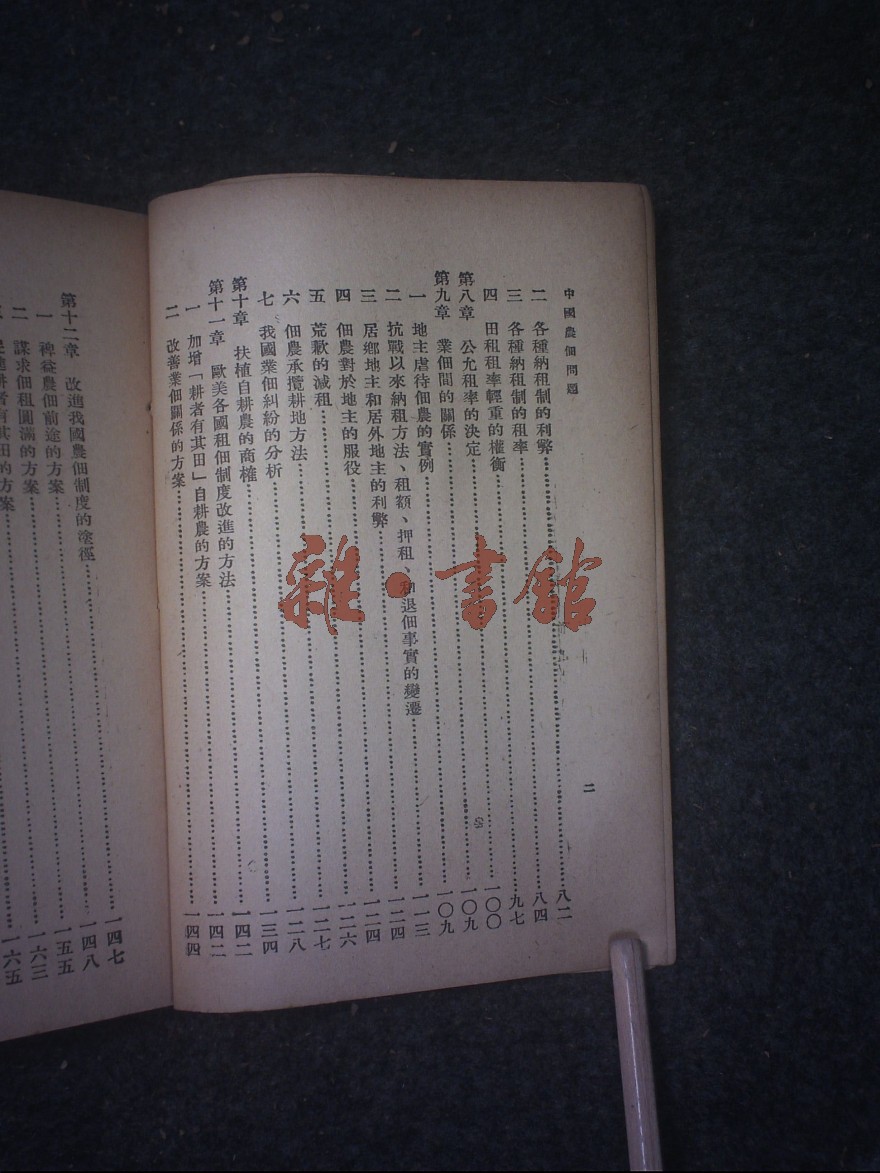 中國農佃問題
二 各種納租制的利弊……八二
三 各種納租制的租率……八四
四 田租租率輕重的權衡……九七
第八章 公允租率的決定……一〇〇
第九章 業佃間的關係……一〇九
一 地主虐待佃農的實例……一〇九
二 抗戰以來納租方法、租額、押租、和退佃事實的變遷……一一三
三 居鄉地主和居外地主的利弊……一二四
四 佃農對於地主的服役……一二四
五 荒歉的減租……一二六
六 佃農承攬耕地方法……一二七
七 我國業佃糾紛的分析……一二八
第十章 扶植自耕農的商榷……一三四
第十一章 歐美各國租佃制度改進的方法……一四二
一 加增「耕者有其田」自耕農的方案……一四二
二 改善業佃關係的方案……一四四
二
第十二章 改進我國農佃制度的塗徑……一四七
一 裨益農佃前途的方案……一四八
二 謀求佃租圓滿的方案……一五五
耕者有其田的方案……一六三
一六五
雜·書館